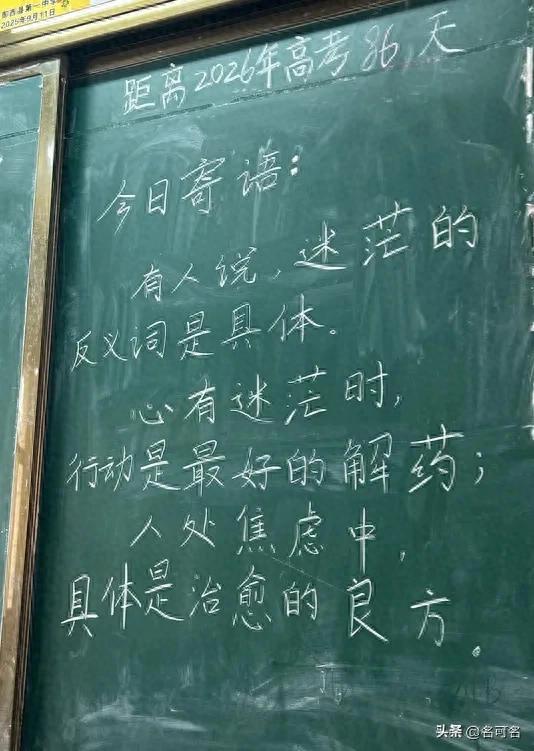 2025年9月11日
距离2026年高考86天
今日寄语：
有人说，迷茫的
反义词是具体。
心有迷茫时，
行动是最好的解药；
人处焦虑中，
具体是治愈的良方。
头条 @名可名